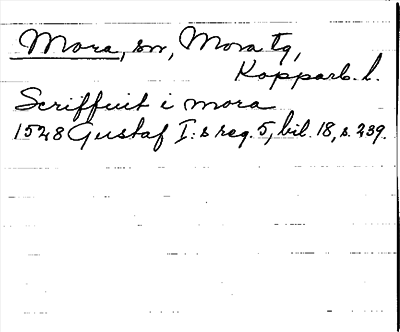 Mora, sn, Mora tg,
Kopparb. l.
Scriffuit i mora
1528 Gustaf I:s reg. 5, bil. 18, s. 239.